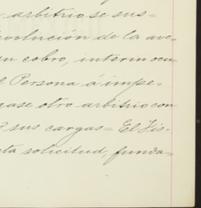 arbitrio se sus=
volución de la ave-
en cobro, interin ocu
Persona á impe-
case otro arbitrio con
sus cargas= El Fis-
ta solicitud, funda-